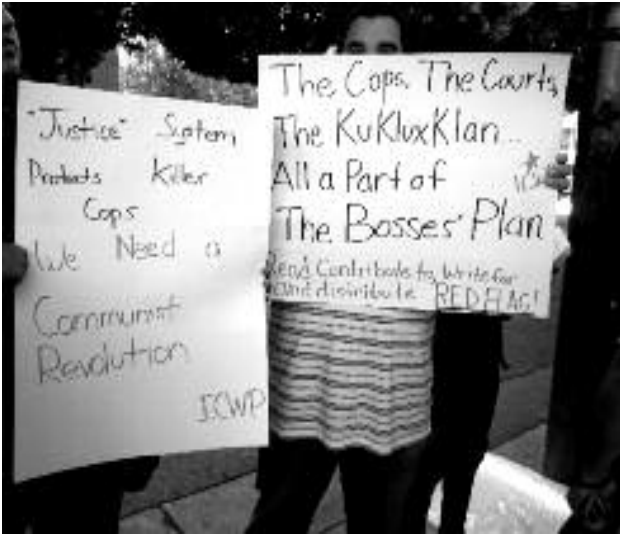 "Justice" System
Protects Killer
Cops
We Need a
Communist
Revolution
ICWP
The Cops, The Courts,
The Ku Klux Klan...
All a Part of
The Bosses' Plan
Read, Contribute to, Write for
and distribute RED FLAG!